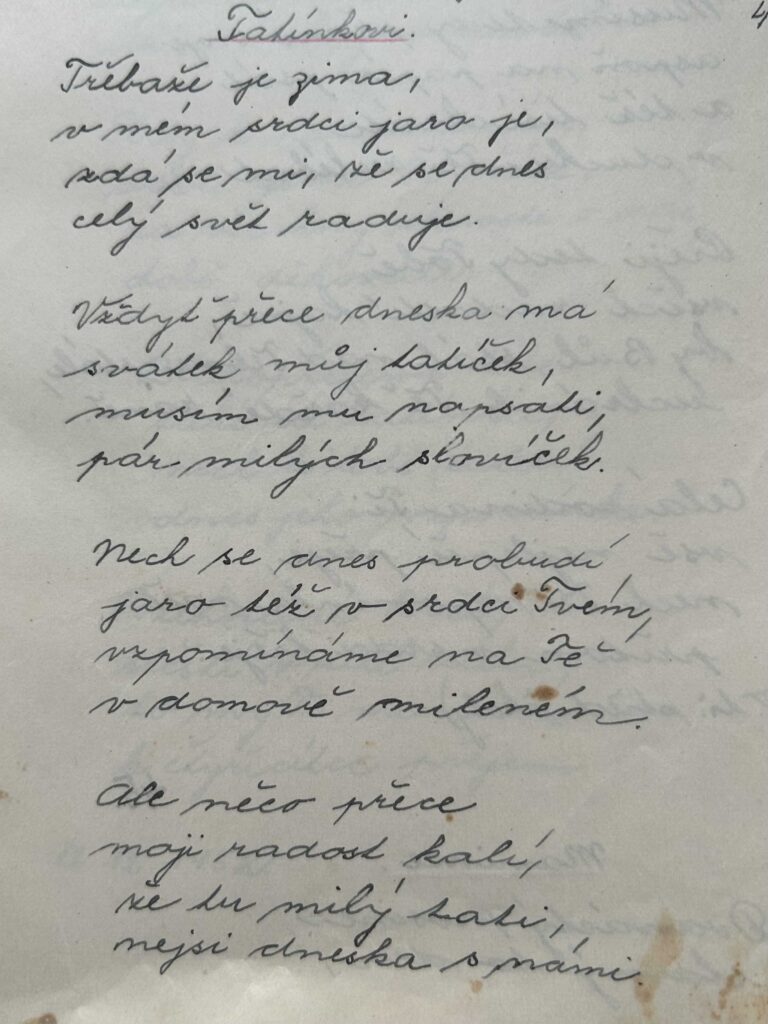 4
Tatínkovi.
Třebaže je zima,
v mém srdci jaro je,
zdá se mi, že se dnes
celý svět raduje.
Vždyť přece dneska má
svátek můj tatíček,
musím mu napsati,
pár milých slovíček.
Nech se dnes probudí
jaro též v srdci Tvém,
vzpomínáme na Tě
v domově mileném.
Ale něco přece
moji radost kalí,
že tu milý tati,
nejsi dneska s námi.